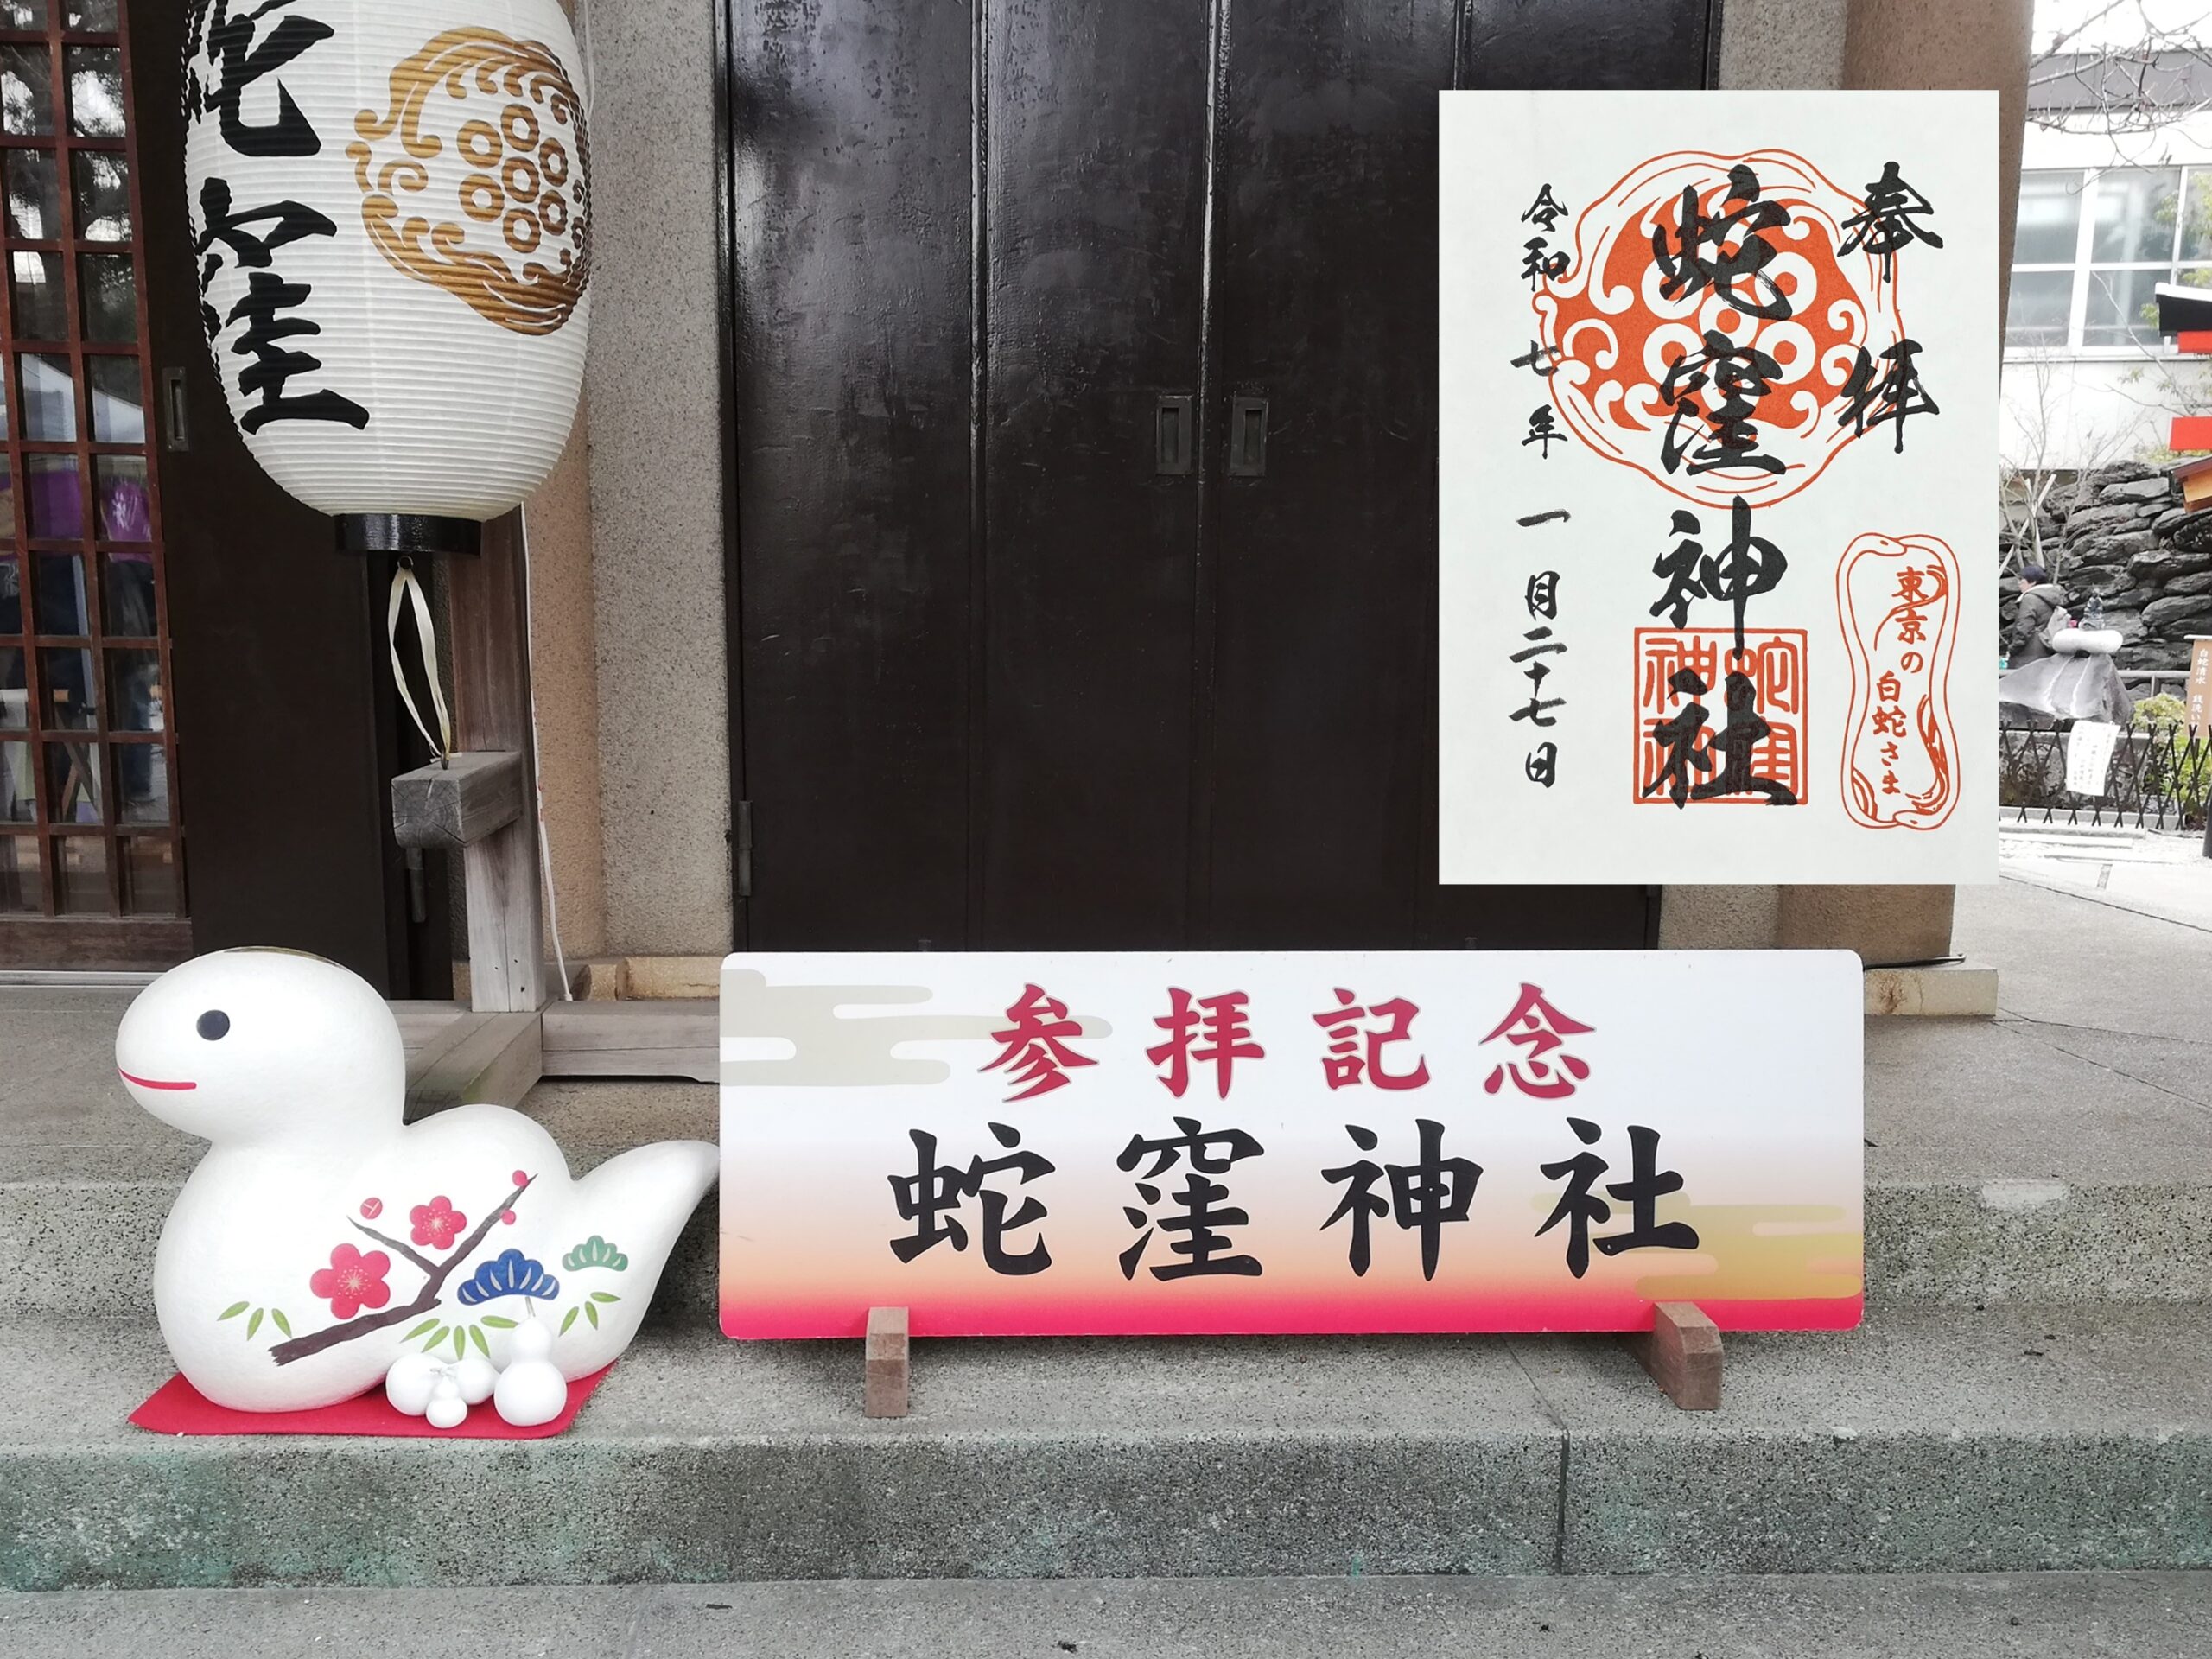 蛇窪
奉拝
蛇窪神社
令和七年一月二十七日
東京の
白蛇さま
蛇窪
神社
参拝記念
蛇窪神社